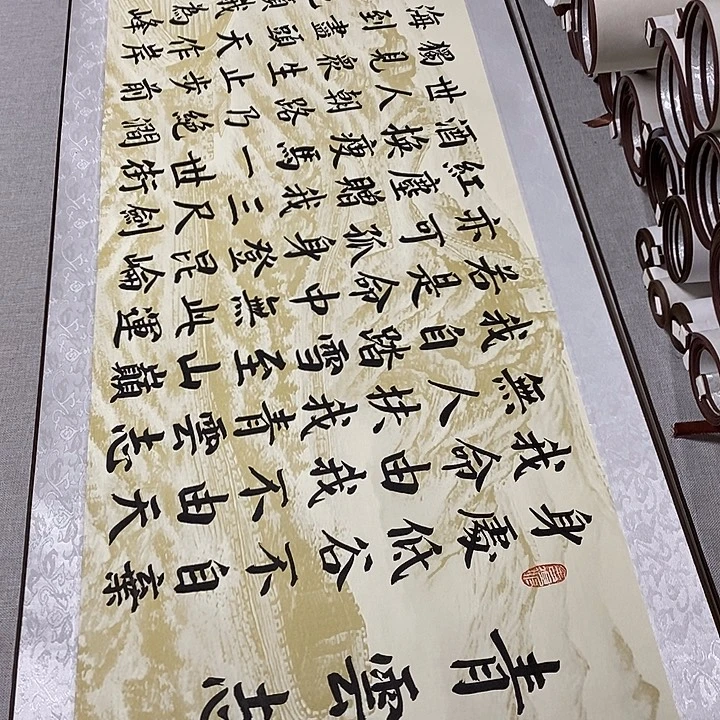 青雲志
身處低谷不自棄
我命由我不由天
無人扶我青雲志
我自踏雪至山巔
若是命中無此運
亦可孤身登崑崙
紅塵贈我三尺劍
酒換瘦馬一世街
世人朝路乃絕澗
獨見眾生止步前
海到盡頭天作岸
頂我為峰